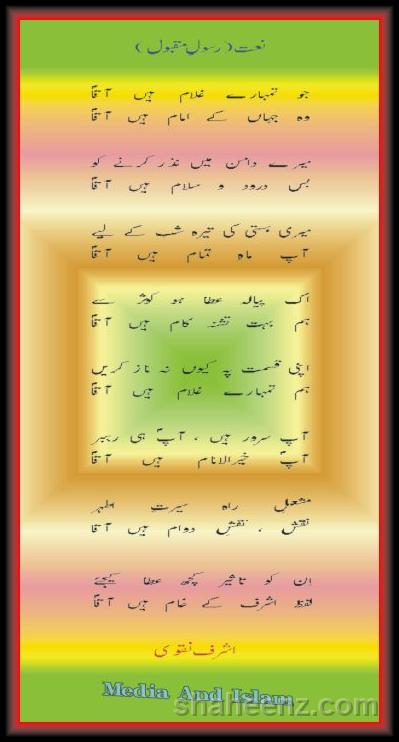 نعت (رسول مقبول)
جو تمہارے غلام ہیں آقاؐ
وہ جہاں کے امام ہیں آقاؐ
میرے دامن میں نذر کرنے کو
بس درود و سلام ہیں آقاؐ
میری ہستی کی تیرہ شب کے لیے
آپ ماہِ تمام ہیں آقاؐ
اک پیالہ عطا ہو کوثر سے
ہم بہت تشنہ کام ہیں آقاؐ
اپنی قسمت پہ کیوں نہ ناز کریں
ہم تمہارے غلام ہیں آقاؐ
آپ سرور ہیں ، آپؐ ہی رہبر
آپؐ خیرالانام ہیں آقاؐ
مشعلِ راہ سیرتِ اطہر
نقش ، نقشِ دوام ہیں آقاؐ
ان کو تاثیر کچھ عطا کیجئے
لفظ اشرف کے خام ہیں آقاؐ
اشرف نقوی
Media And Islam
shaheenz.com